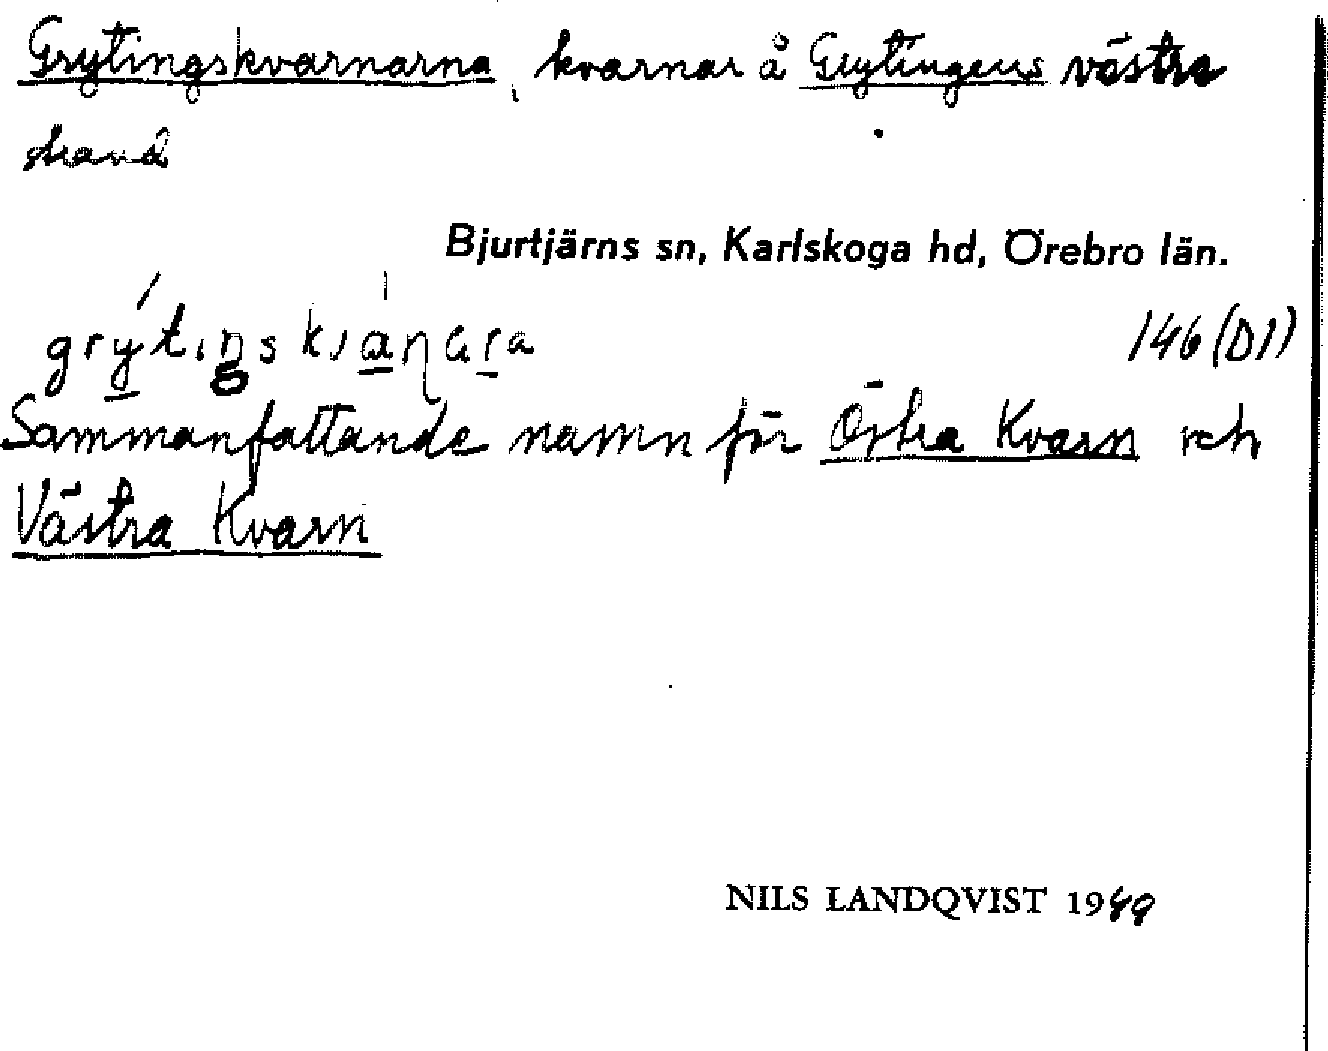 Grytingskvarnarna, kvarnar å Grytingens västra
strand
Bjurtjärns sn, Karlskoga hd, Örebro län.
146 (D1)
Sammanfattande namn för Östra Kvarn och
Västra Kvarn
NILS LANDQVIST 1949